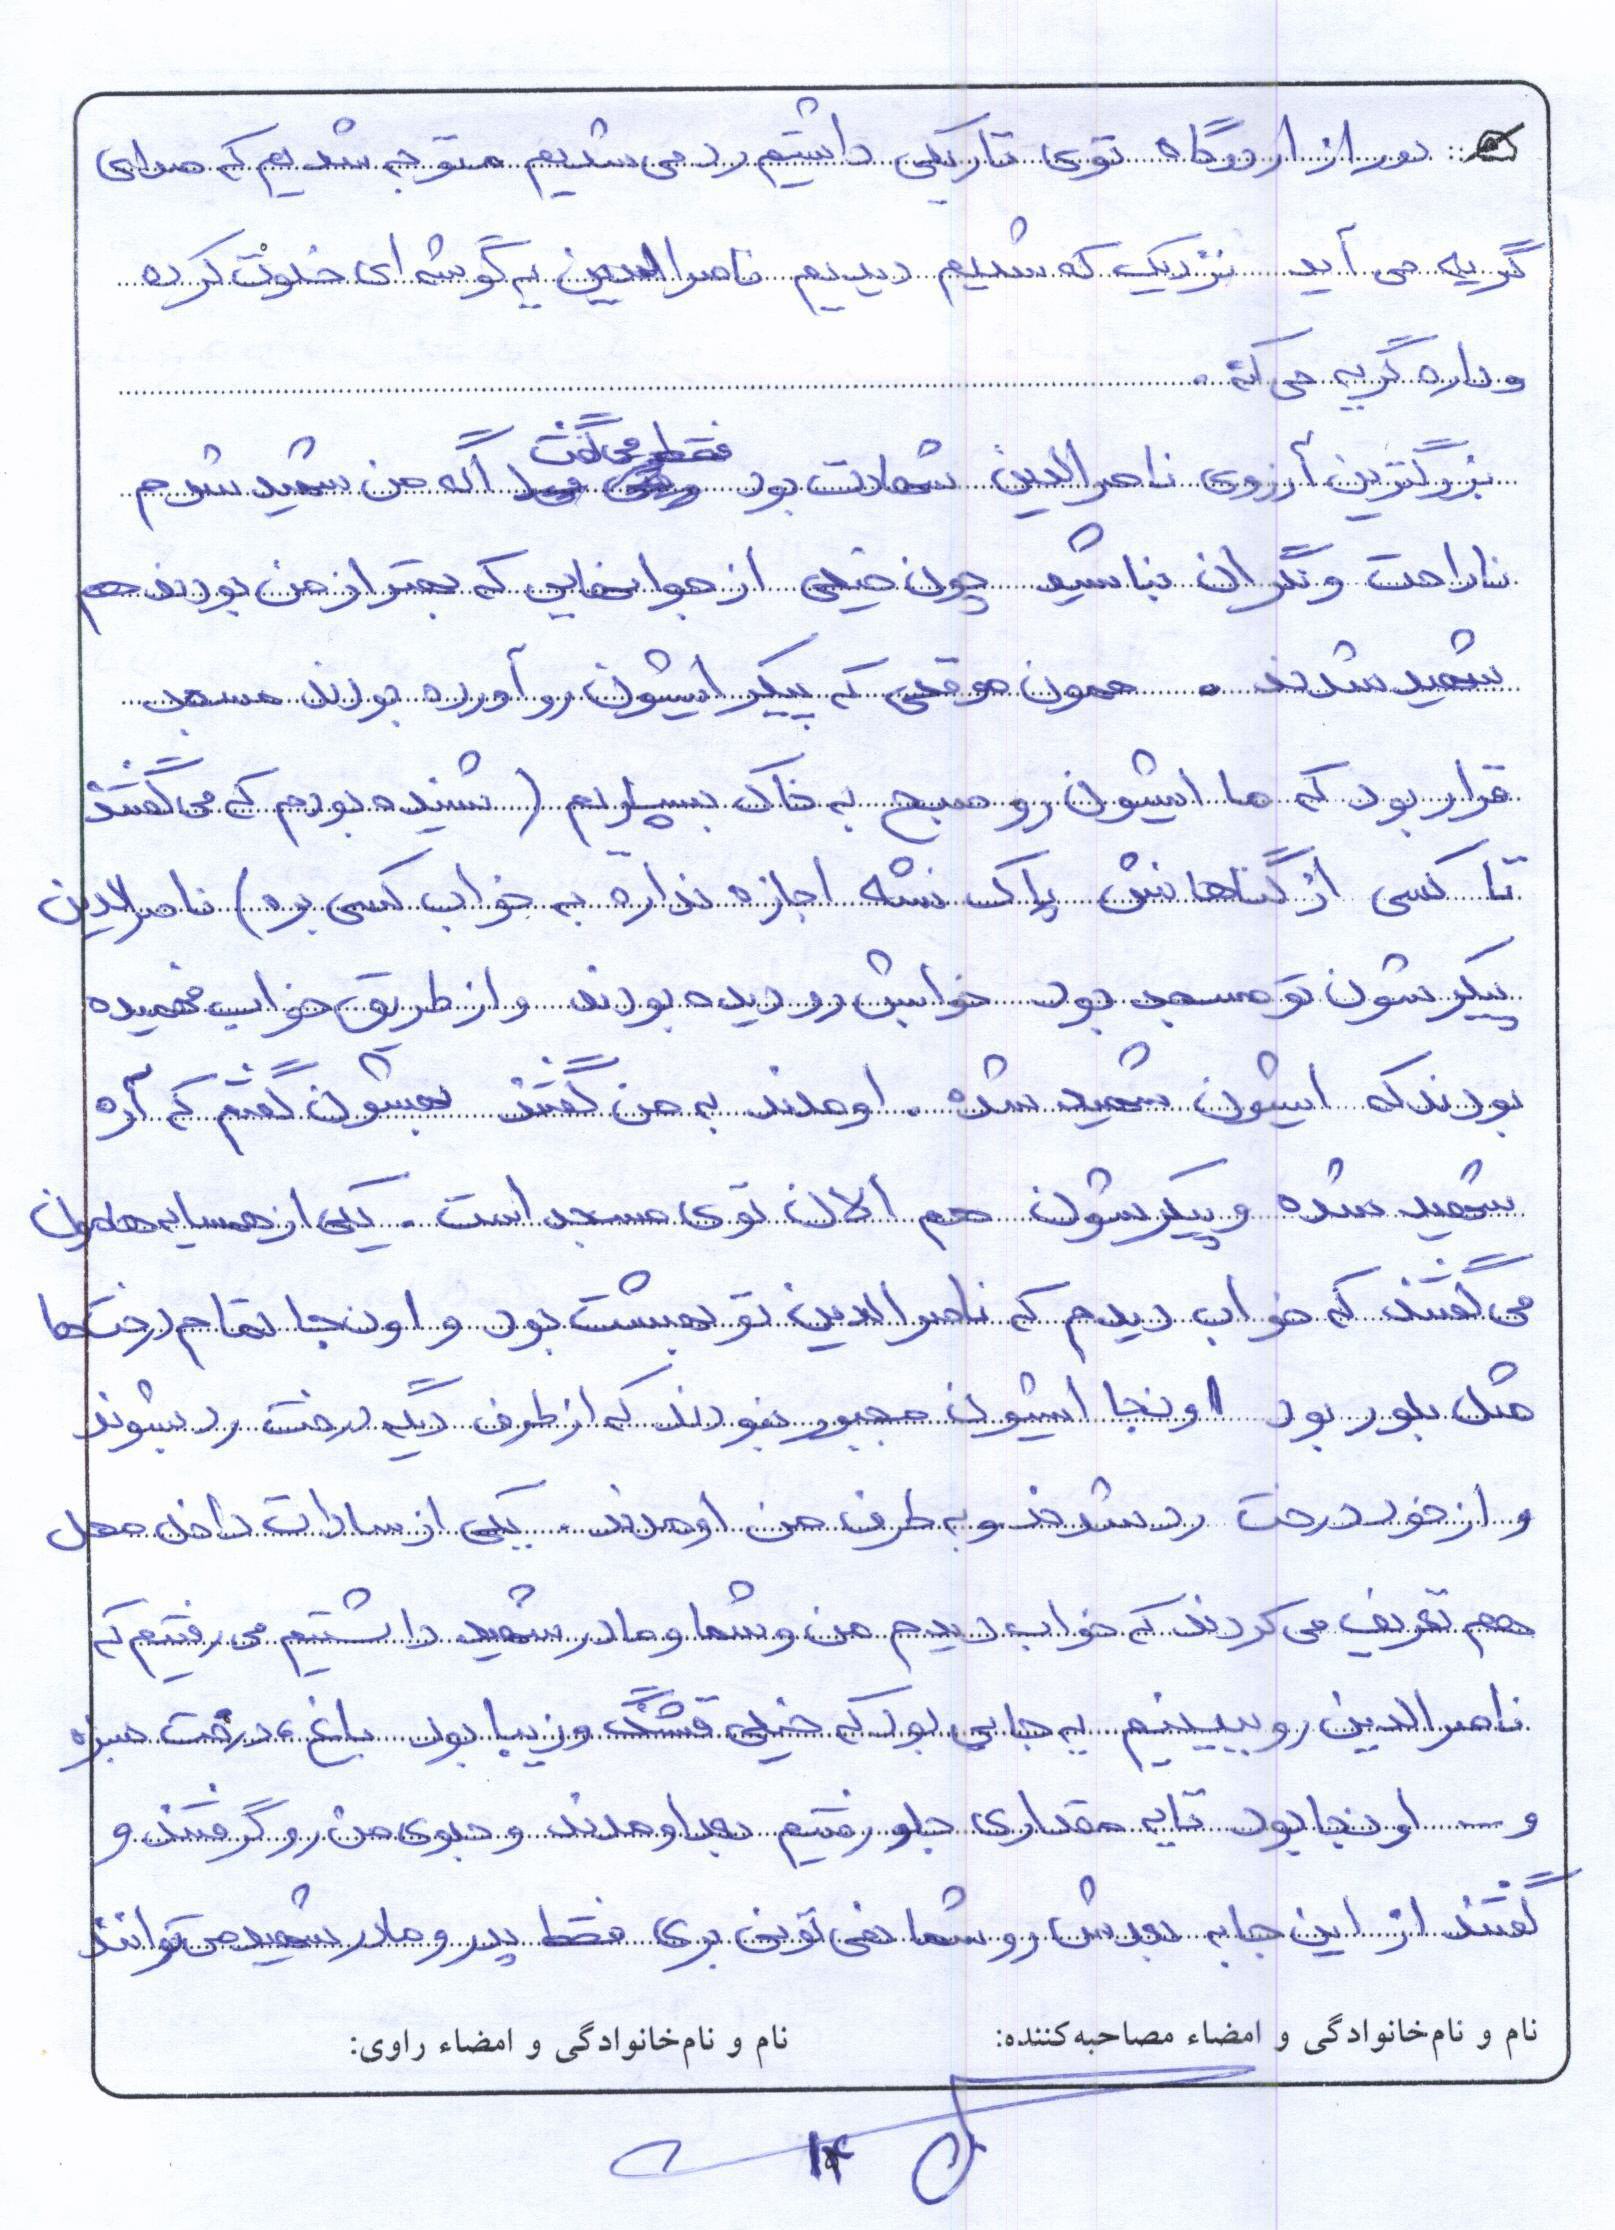 دور از اردوگاه توی تاریکی داشتیم رد می شدیم متوجه شدیم که صدای
گریه می آید نزدیک که شدیم دیدیم ناصرالدین یه گوشه ای خلوت کرده
و داره گریه می کنه.
بزرگترین آرزوی ناصرالدین شهادت بود فقط می گفت اگه من شهید شدم
ناراحت و نگران نباشید چون خیلی از جوانهایی که بهتر از من بودند هم
شهید شدند . همون موقعی که پیکر ایشون رو آورده بودند مسجد
قرار بود که ما ایشون رو صبح به خاک بسپاریم (شنیده بودم که می گفتند
تا کسی از گناهانش پاک نشه اجازه نداره به خواب کسی بره) ناصرالدین
پیکرشون تو مسجد بود خوابش رو دیده بودند و از طریق خواب فهمیده
بودند که ایشون شهید شده . اومدند به من گفتند بهشون گفتم که آره
شهید شده و پیکرشون هم الان توی مسجد است . یکی از همسایه هامون
می گفتند که خواب دیدم که ناصرالدین تو بهشت بود و اونجا تمام درخت ها
مثل بلور بود اونجا ایشون مجبور نبودند که از طرف دیگه درخت رد بشوند
و از خود درخت رد شدند و به طرف من اومدند . یکی از سادات داخل محل
هم تعریف می کردند که خواب دیدم من و شما و مادر شهید داشتیم می رفتیم که
ناصرالدین رو ببینیم یه جایی بود که خیلی قشنگ و زیبا بود باغ ، درخت سبزه
و ... اونجا بود تا یه مقداری جلو رفتیم بعد اومدند و جلوی من رو گرفتند و
گفتند از این جا به بعدش رو شما نمی تونین بری فقط پدر و مادر شهید می توانند
نام و نام‌خانوادگی و امضاء مصاحبه‌کننده: نام و نام‌خانوادگی و امضاء راوی:
۱۴